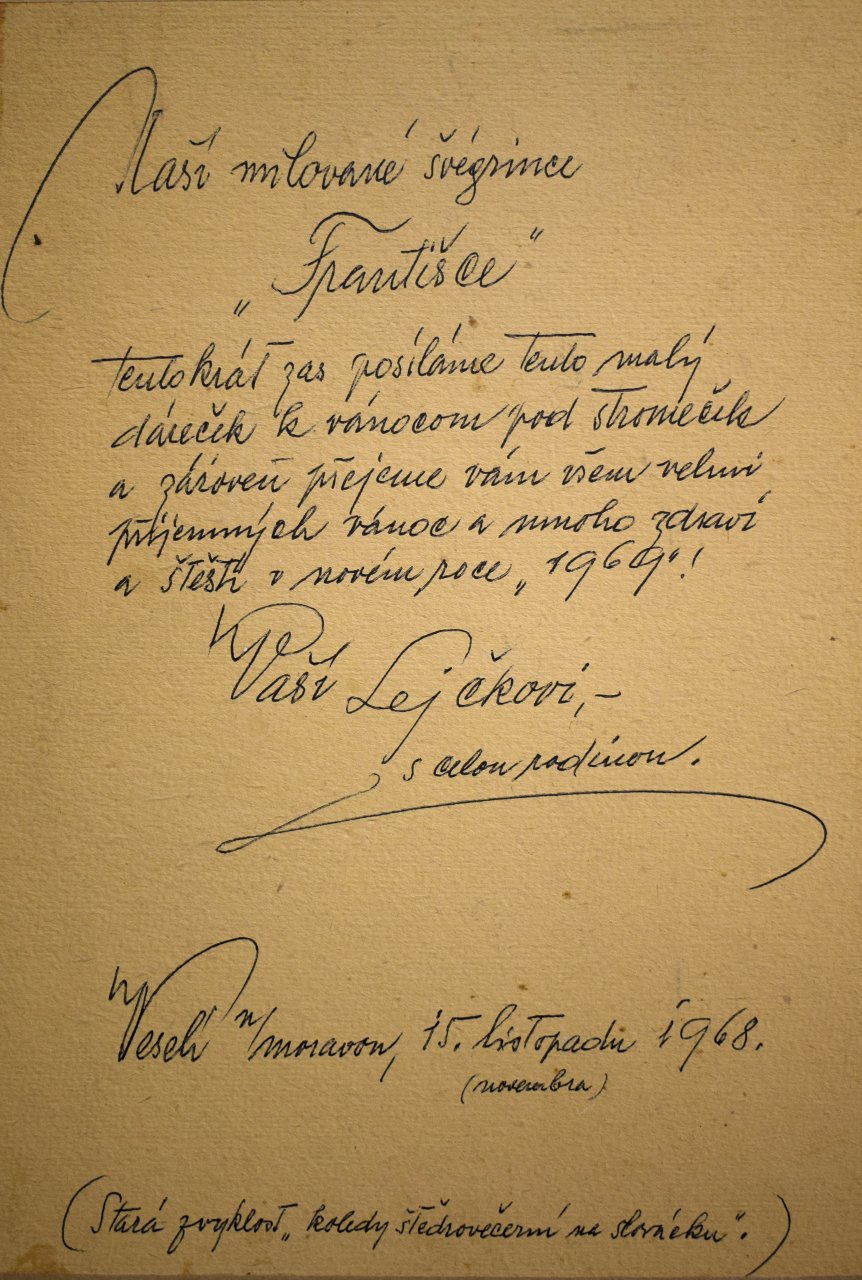 Naší milované švégrince
„Františce"
tentokrát zas posíláme tento malý
dáreček k vánocom pod stromeček
a zároveň přejeme vám všem velmi
příjemných vánoc a mnoho zdraví
a štěstí v novém roce „1969"!
Vaší Lejčkovi,-
s celou rodinou.
Veselí n/moravou, 15. listopadu 1968.
(novembra)
(Stará zvyklost „koledy štědrovečerní na slovácku".)